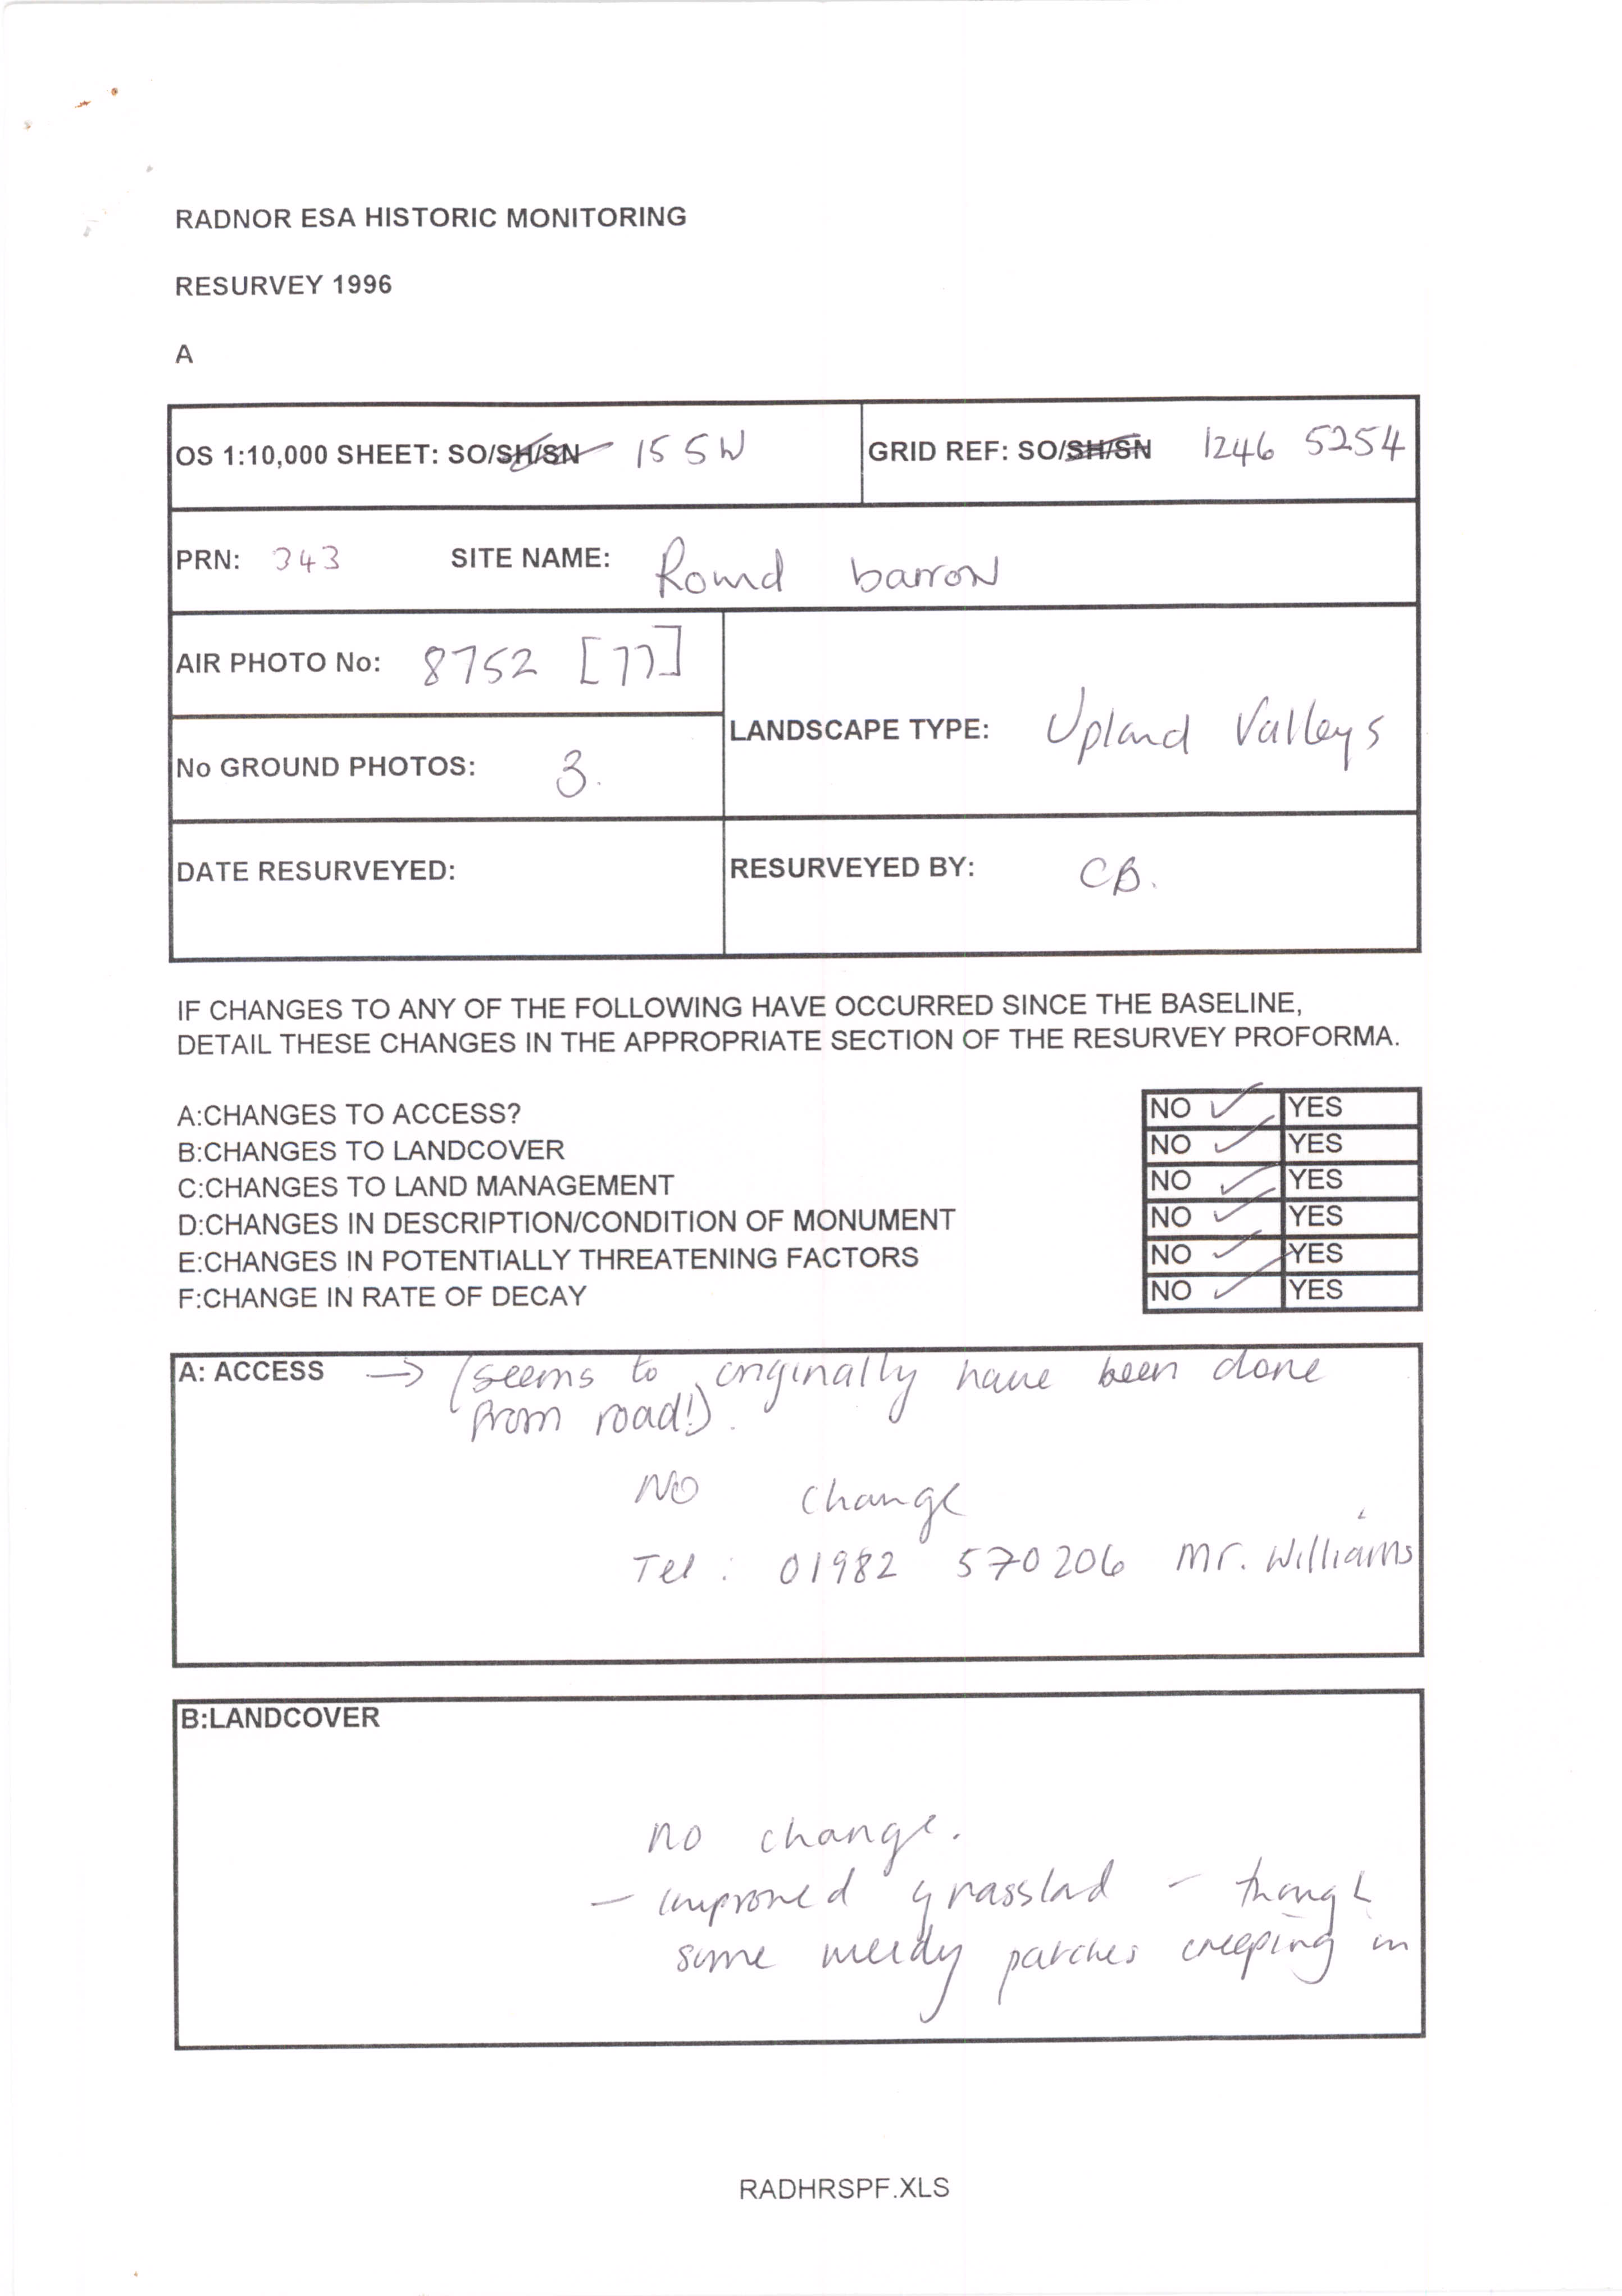 RADNOR ESA HISTORIC MONITORING
RESURVEY 1996
A
OS 1:10,000 SHEET: SO/SH/SN 15 SW
GRID REF: SO/SH/SN 1246 5254
PRN: 343 SITE NAME: Round barrow
AIR PHOTO No: 8752 [77]
LANDSCAPE TYPE: Upland Valleys
No GROUND PHOTOS: 3.
DATE RESURVEYED:
RESURVEYED BY: CB.
IF CHANGES TO ANY OF THE FOLLOWING HAVE OCCURRED SINCE THE BASELINE,
DETAIL THESE CHANGES IN THE APPROPRIATE SECTION OF THE RESURVEY PROFORMA.
A:CHANGES TO ACCESS? NO ✓ YES
B:CHANGES TO LANDCOVER NO ✓ YES
C:CHANGES TO LAND MANAGEMENT NO ✓ YES
D:CHANGES IN DESCRIPTION/CONDITION OF MONUMENT NO ✓ YES
E:CHANGES IN POTENTIALLY THREATENING FACTORS NO ✓ YES
F:CHANGE IN RATE OF DECAY NO ✓ YES
A: ACCESS → (seems to originally have been done
from road!).
NO change
Tel : 01982 570206 Mr. Williams
B:LANDCOVER
no change.
- improved grassland - though
some weedy patches creeping in
RADHRSPF.XLS